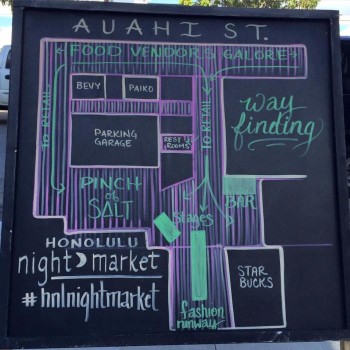 AUAHI ST.
FOOD VENDORS GALORE
BEVY
PAIKO
way
finding
TO RETAIL
TO RETAIL
PARKING
GARAGE
REST
ROOMS
PINCH
of
SALT
BAR
Stages
HONOLULU
night market
#hnlnightmarket
STAR
BUCKS
fashion
runway